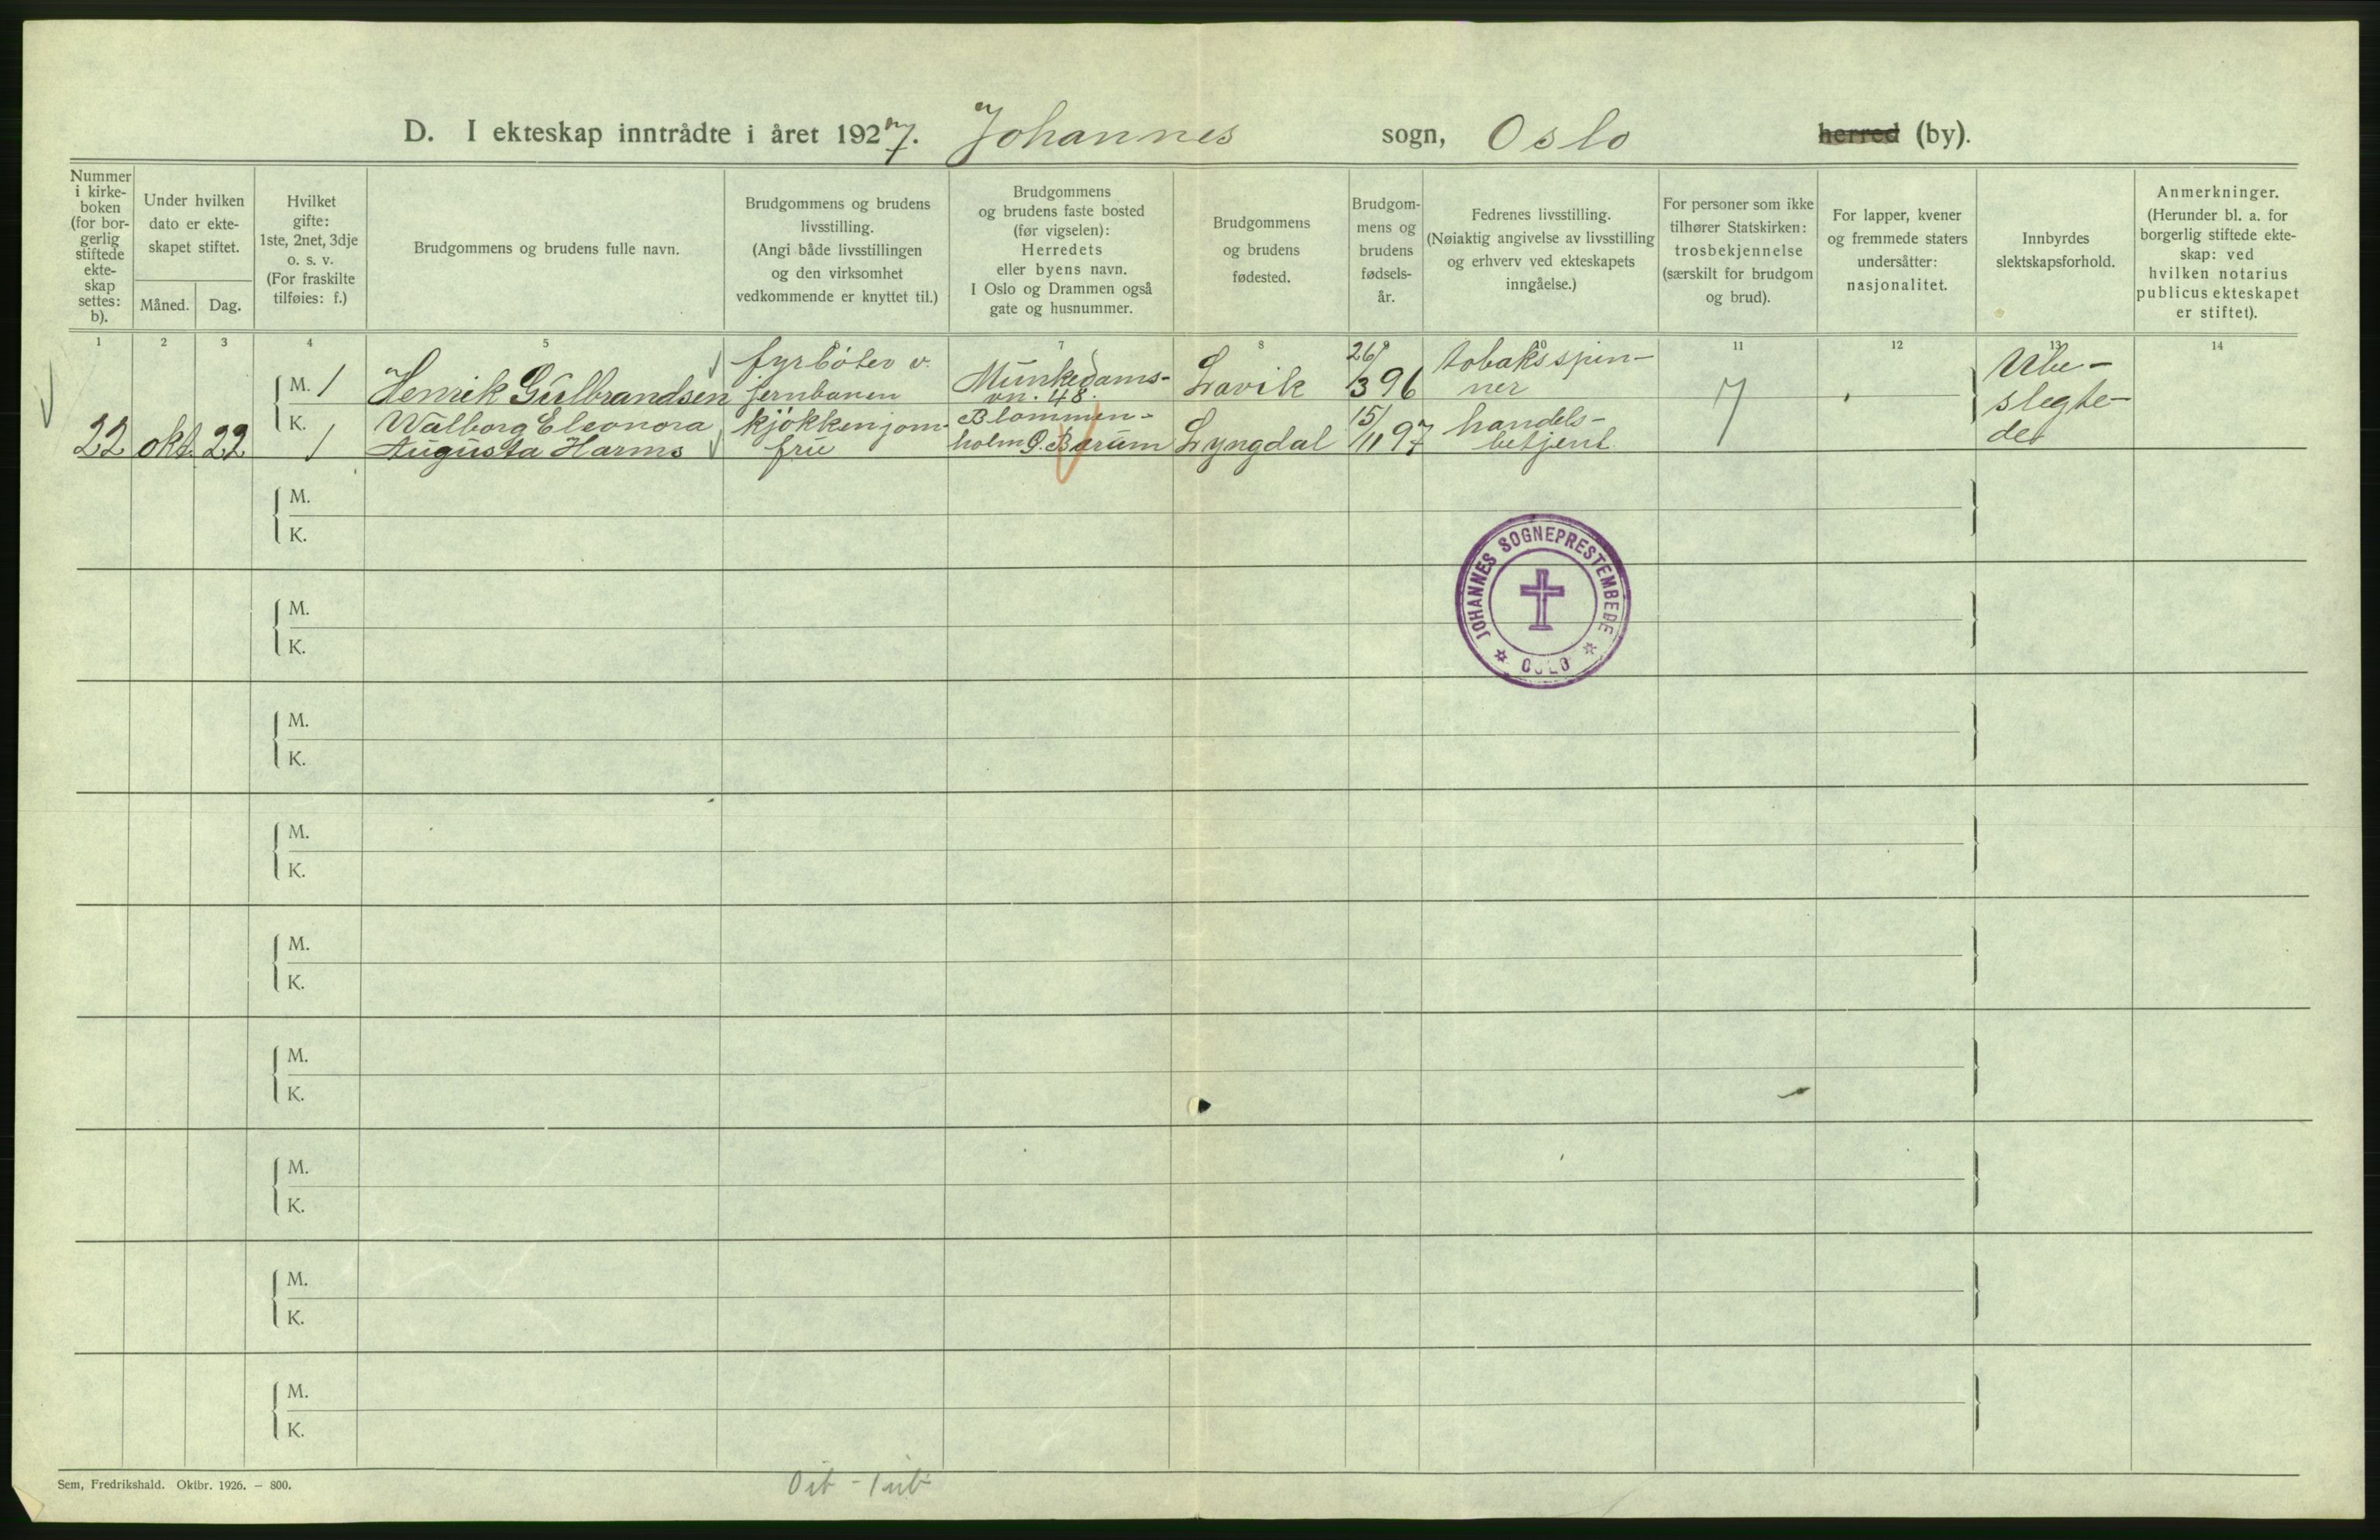 D. I ekteskap inntrådte i året 1927. Johannes sogn, Oslo herred (by).
Nummer
i kirke-
boken
(for bor-
gerlig
stiftede
ekte-
skap
settes:
b).
Under hvilken
dato er ekte-
skapet stiftet.
Måned. Dag.
Hvilket
gifte:
1ste, 2net, 3dje
o. s. v.
(For fraskilte
tilføies: f.)
Brudgommens og brudens fulle navn.
Brudgommens og brudens
livsstilling.
(Angi både livsstillingen
og den virksomhet
vedkommende er knyttet til.)
Brudgommens
og brudens faste bosted
(før vigselen):
Herredets
eller byens navn.
I Oslo og Drammen også
gate og husnummer.
Brudgommens
og brudens
fødested.
Brudgom-
mens og
brudens
fødsels-
år.
Fedrenes livsstilling.
(Nøiaktig angivelse av livsstilling
og erhverv ved ekteskapets
inngåelse.)
For personer som ikke
tilhører Statskirken:
trosbekjennelse
(særskilt for brudgom
og brud).
For lapper, kvener
og fremmede staters
undersåtter:
nasjonalitet.
Innbyrdes
slektskapsforhold.
Anmerkninger.
(Herunder bl. a. for
borgerlig stiftede ekte-
skap: ved
hvilken notarius
publicus ekteskapet
er stiftet).
1 2 3 4 5 7 8 9 10 11 12 13 14
22 okt. 22
M. 1
Henrik Gulbrandsen
fyrbøter v.
jernbanen
Munkedams-
vn. 48.
Lavik
26/3 96
tobaksspin-
ner
K. 1
Walborg Eleonora
Augusta Harms
kjøkkenjom-
fru
Blommen-
holm Ø. Bærum
Lyngdal
15/11 97
handels-
betjent
Ube-
slegte-
det
M.
K.
M.
K.
M.
K.
M.
K.
M.
K.
M.
K.
M.
K.
M.
K.
M.
K.
JOHANNES SOGNEPRESTEMBEDE
OSLO
Sem, Fredrikshald. Oktbr. 1926. — 800.